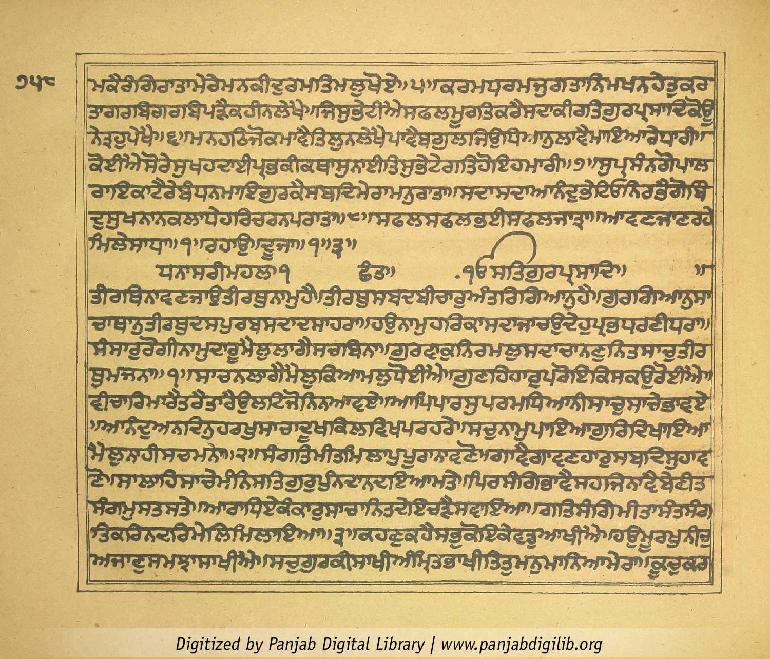 ੭੫੮
ਮਕੈਰੀਗਿਰਾਤਾਮੇਰੇਮਨਕੀਦੁਰਮਤਿਮਲੁਖੋਏ॥੫॥ਕਰਮਧਰਮਜੁਗਤਾਨਿਮਖਨਹੇਤੁਕਰ
ਤਾਗਰਬਿਗਰਬਿਪੜੈਕਹੀਨਲੇਖੈ॥ਜਿਸੁਭੇਟੀਐਸਫਲਮੂਰਤਿਕਰੈਸਦਾਕੀਰਤਿਗੁਰਪ੍ਰਸਾਦਿਕੋਊ
ਨੇਤ੍ਰਹੁਪੇਖੈ॥੬॥ਮਨਹਠਿਜੋਕਮਾਵੈਤਿਲੁਨਲੇਖੈਪਾਵੈਬਗੁਲਜਿਉਧਿਆਨੁਲਾਵੈਮਾਇਆਰੇਧਾਰੀ॥
ਕੋਈਐਸੋਰੇਸੁਖਹਦਾਈਪ੍ਰਭਕੀਕਥਾਸੁਨਾਈਤਿਸੁਭੇਟੇਗਤਿਹੋਇਹਮਾਰੀ॥੭॥ਸੁਪ੍ਰਸੰਨਗੋਪਾਲ
ਰਾਇਕਾਟੈਰੇਬੰਧਨਮਾਇਗੁਰਕੈਸਬਦਿਮੇਰਾਮਨੁਰਾਤਾ॥ਸਦਾਸਦਾਆਨੰਦੁਭੇਟਿਓਨਿਰਭੈਗੋਬਿੰ
ਦੁਸੁਖਨਾਨਕਲਾਧੇਹਰਿਚਰਨਪਰਾਤਾ॥੮॥ਸਫਲਸਫਲਭਈਸਫਲਜਾਤ੍ਰਾ॥ਆਵਣਜਾਣਰਹੇ
ਮਿਲੇਸਾਧਾ॥੧॥ਰਹਾਉਦੂਜਾ॥੧॥੩॥
ਧਨਾਸਰੀਮਹਲਾ੧ ਛੰਤ॥ ੴਸਤਿਗੁਰਪ੍ਰਸਾਦਿ॥ ॥
ਤੀਰਥਿਨਾਵਣਜਾਉਤੀਰਥੁਨਾਮੁਹੈ॥ਤੀਰਥੁਸਬਦਬੀਚਾਰੁਅੰਤਰਿਗਿਆਨੁਹੈ॥ਗੁਰਗਿਆਨੁਸਾ
ਚਾਥਾਨੁਤੀਰਥੁਦਸਪੁਰਬਸਦਾਦਸਾਹਰਾ॥ਹਉਨਾਮੁਹਰਿਕਾਸਦਾਜਾਚਉਦੇਹੁਪ੍ਰਭਧਰਣੀਧਰਾ॥
ਸੰਸਾਰੁਰੋਗੀਨਾਮੁਦਾਰੂਮੈਲੁਲਾਗੈਸਚਬਿਨਾ॥ਗੁਰਵਾਕੁਨਿਰਮਲੁਸਦਾਚਾਨਣੁਨਿਤਸਾਚੁਤੀਰ
ਥੁਮਜਨਾ॥੧॥ਸਾਚਨਲਾਗੈਮੈਲੁਕਿਆਮਲੁਧੋਈਐ॥ਗੁਣਹਿਹਾਰੁਪਰੋਇਕਿਸਕਉਰੋਈਐ॥
ਵੀਚਾਰਿਮਾਰੈਤਰੈਤਾਰੈਉਲਟਿਜੋਨਿਨਆਵਏ॥ਆਪਿਪਾਰਸੁਪਰਮਧਿਆਨੀਸਾਚੁਸਾਚੇਭਾਵਏ
॥ਆਨੰਦੁਅਨਦਿਨੁਹਰਖੁਸਾਚਾਦੂਖਕਿਲਵਿਖਪਰਹਰੇ॥ਸਚੁਨਾਮੁਪਾਇਆਗੁਰਿਦਿਖਾਇਆ
ਮੈਲੁਨਹੀਸਚਮਨੇ॥੨॥ਸੰਗਤਿਮੀਤਮਿਲਾਪੁਪੂਰਾਨਾਵਣੋ॥ਗਾਵੈਗਾਵਣਹਾਰੁਸਬਦਿਸੁਹਾਵ
ਣੋ॥ਸਾਲਾਹਿਸਾਚੇਮੰਨਿਸਤਿਗੁਰੁਪੁੰਨਦਾਨਦਇਆਮਤੇ॥ਪਿਰਸੰਗਿਭਾਵੈਸਹਜਿਨਾਵੈਬੇਣੀਤ
ਸੰਗਮੁਸਤਸਤੇ॥ਆਰਾਧਿਏਕੰਕਾਰੁਸਾਚਾਨਿਤਦੇਇਚੜੈਸਵਾਇਆ॥ਗਤਿਸੰਗਿਮੀਤਾਸੰਤਸੰਗ
ਤਿਕਰਿਨਦਰਿਮੇਲਿਮਿਲਾਇਆ॥੩॥ਕਹਣੁਕਹੈਸਭੁਕੋਇਕੇਵਡੁਆਖੀਐ॥ਹਉਮੂਰਖੁਨੀਚੁ
ਅਜਾਣੁਸਮਝਾਸਾਖੀਐ॥ਸਚੁਗੁਰਕੀਸਾਖੀਅੰਮ੍ਰਿਤਭਾਖੀਤਿਤੁਮਨੁਮਾਨਿਆਮੇਰਾ॥ਕੂਚੁਕਰ
Digitized by Panjab Digital Library | www.panjabdigilib.org